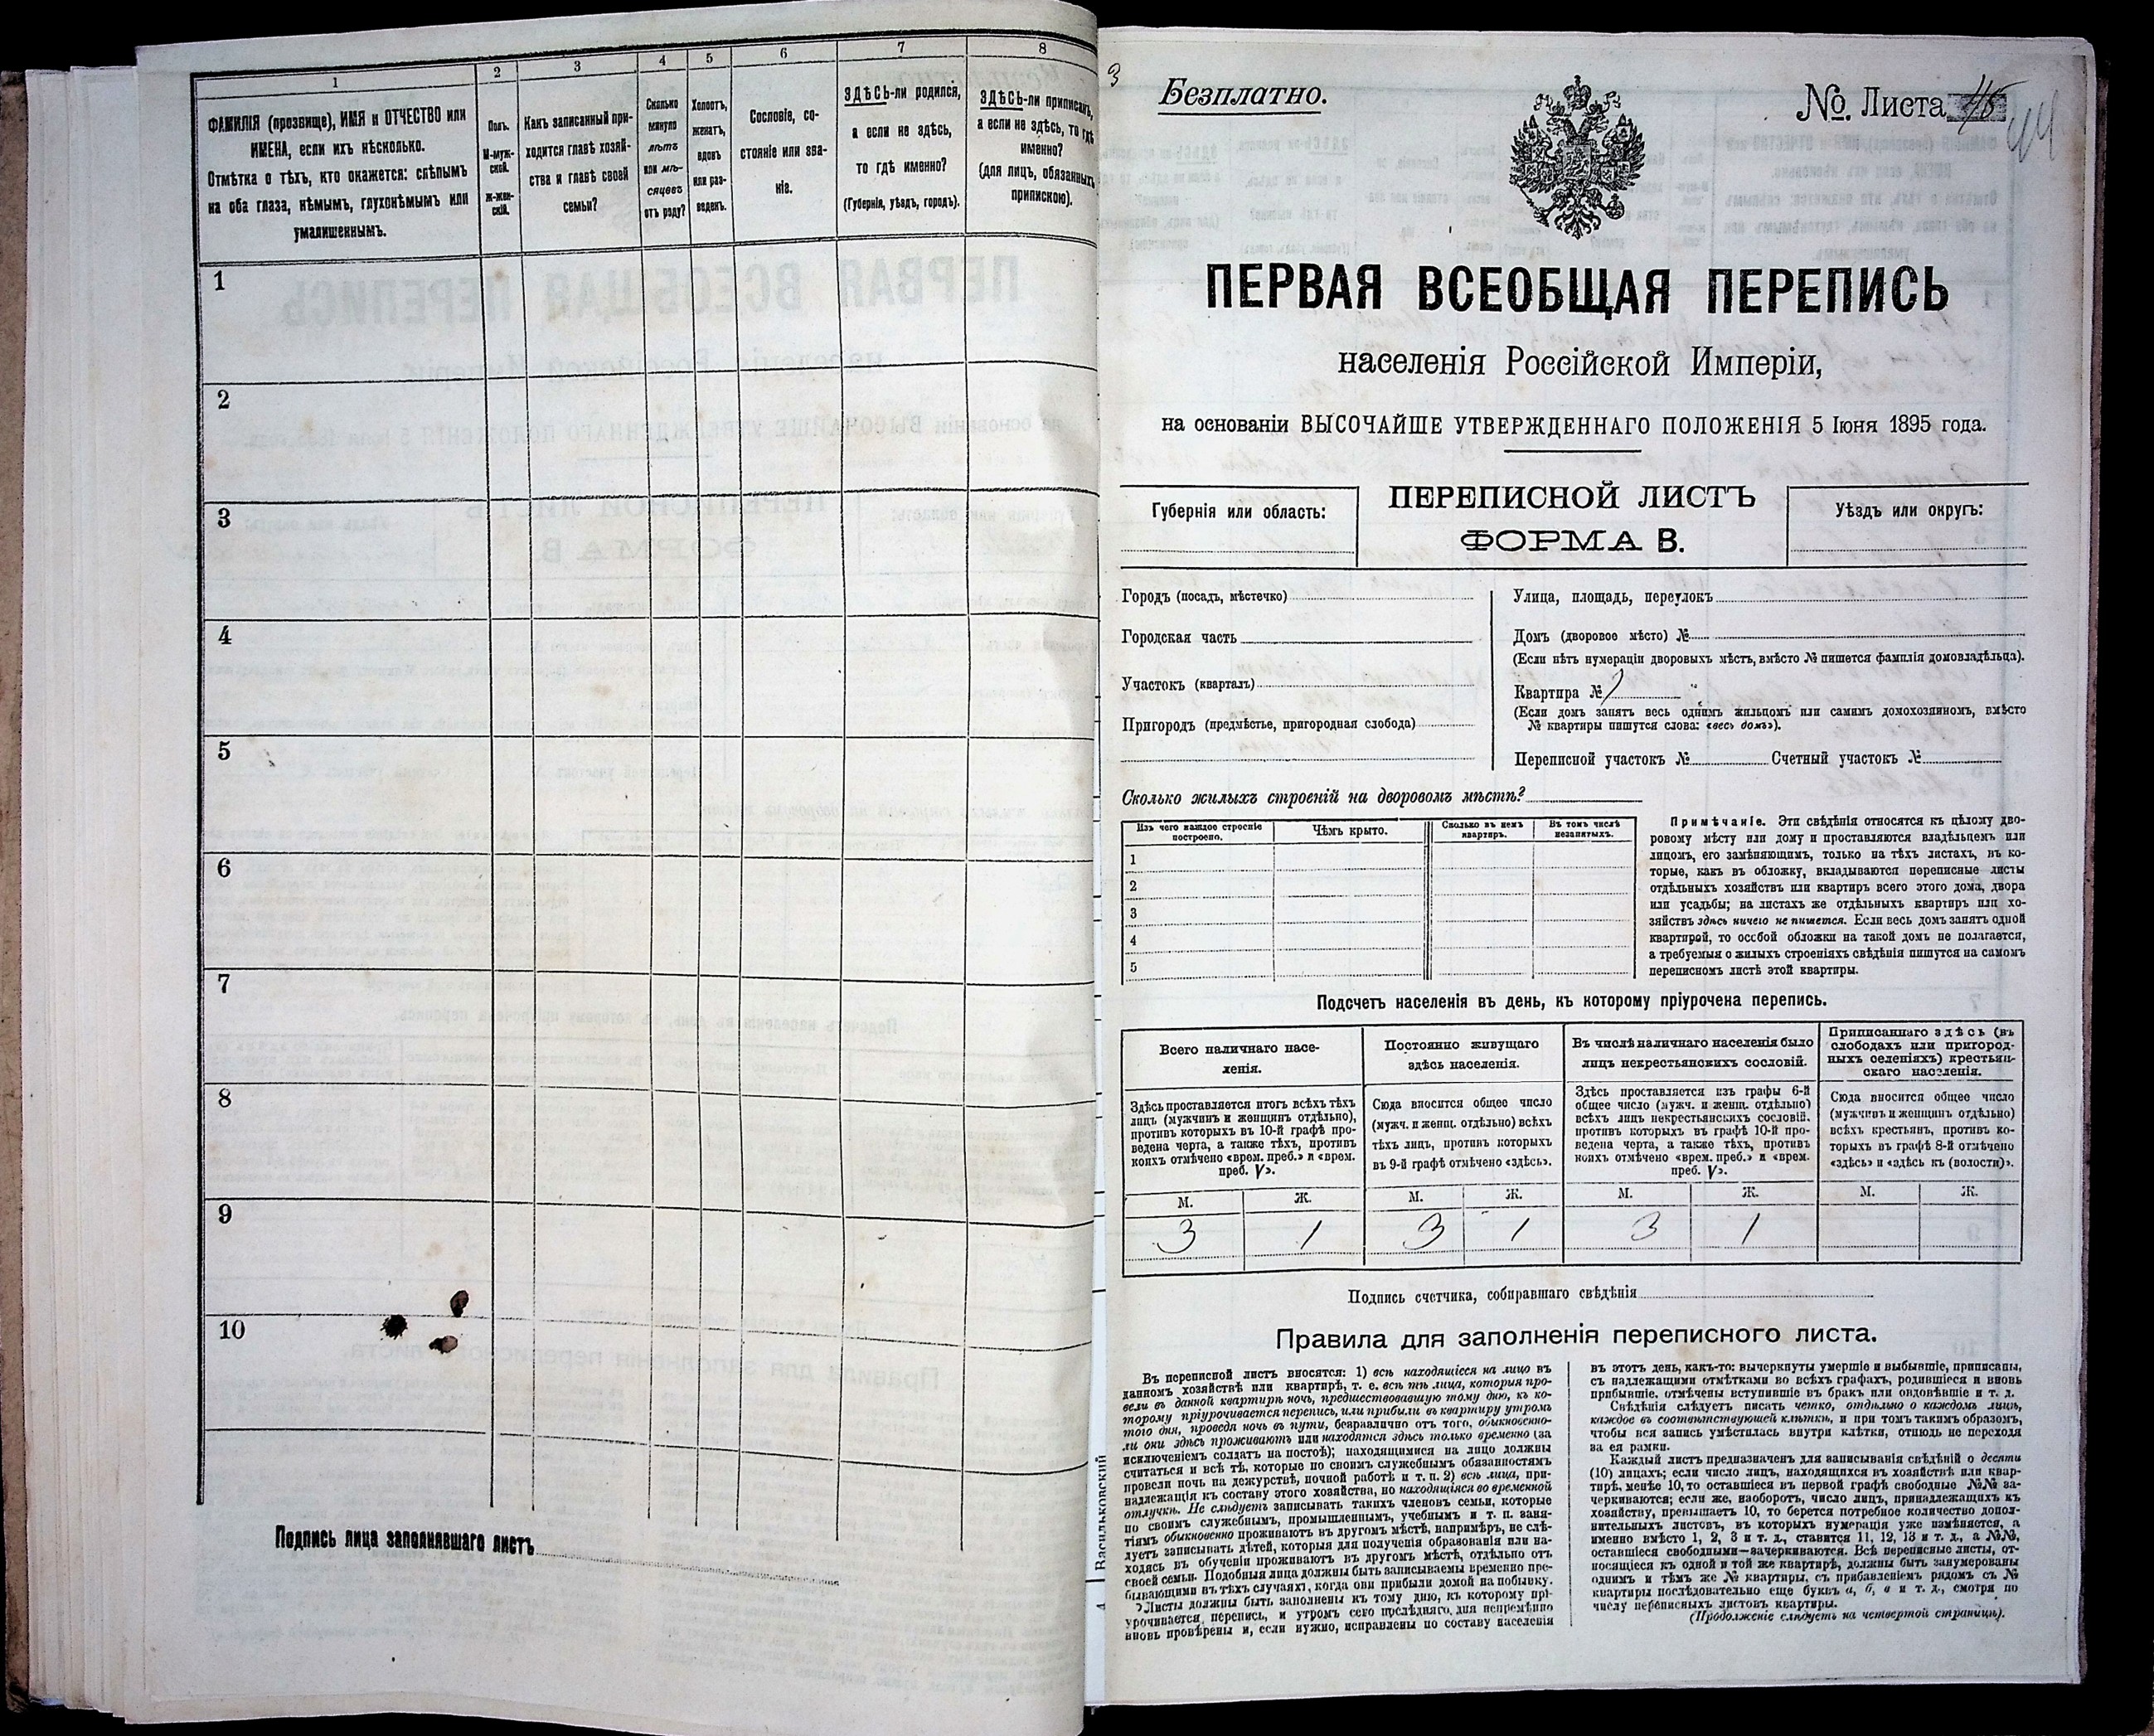 1
2
3
4
5
6
7
8
ФАМИЛІЯ (прозвище), ИМЯ и ОТЧЕСТВО или
ИМЕНА, если ихъ нѣсколько.
Отмѣтка о тѣхъ, кто окажется: слѣпымъ
на оба глаза, нѣмымъ, глухонѣмымъ или
умалишеннымъ.
Полъ.
М-муж-
ской.
Ж-жен-
скій.
Какъ записанный при-
ходится главѣ хозяй-
ства и главѣ своей
семьи?
Сколько
минуло
лѣтъ
или мѣ-
сяцевъ
отъ роду?
Холостъ,
женатъ,
вдовъ
или раз-
веденъ.
Сословіе, со-
стояніе или зва-
ніе.
ЗДѢСЬ-ли родился,
а если не здѣсь,
то гдѣ именно?
(Губернія, уѣздъ, городъ).
ЗДѢСЬ-ли приписанъ,
а если не здѣсь, то гдѣ
именно?
(для лицъ, обязанныхъ
припискою).
1
2
3
4
5
6
7
8
9
10
Подпись лица заполнявшаго листъ
3
Безплатно.
№. Листа 45
44
ПЕРВАЯ ВСЕОБЩАЯ ПЕРЕПИСЬ
населенія Россійской Имперіи,
на основаніи ВЫСОЧАЙШЕ УТВЕРЖДЕННАГО ПОЛОЖЕНІЯ 5 Іюня 1895 года.
Губернія или область:
ПЕРЕПИСНОЙ ЛИСТЪ
ФОРМА В.
Уѣздъ или округъ:
Городъ (посадъ, мѣстечко)
Городская часть
Участокъ (кварталъ)
Пригородъ (предмѣстье, пригородная слобода)
Улица, площадь, переулокъ
Домъ (дворовое мѣсто) №
(Если нѣтъ нумераціи дворовыхъ мѣстъ, вмѣсто № пишется фамилія домовладѣльца).
Квартира №
(Если домъ занятъ весь однимъ жильцомъ или самимъ домохозяиномъ, вмѣсто
№ квартиры пишутся слова: «весь домъ»).
Переписной участокъ № Счетный участокъ №
Сколько жилыхъ строеній на дворовомъ мѣстѣ?
Изъ чего каждое строеніе
построено.
Чѣмъ крыто.
Сколько въ немъ
квартиръ.
Въ томъ числѣ
незанятыхъ.
1
2
3
4
5
Примѣчаніе. Эти свѣдѣнія относятся къ цѣлому дво-
ровому мѣсту или дому и проставляются владѣльцемъ или
лицомъ, его замѣняющимъ, только на тѣхъ листахъ, въ ко-
торые, какъ въ обложку, вкладываются переписные листы
отдѣльныхъ хозяйствъ или квартиръ всего этого дома, двора
или усадьбы; на листахъ же отдѣльныхъ квартиръ или хо-
зяйствъ здѣсь ничего не пишется. Если весь домъ занятъ одной
квартирой, то особой обложки на такой домъ не полагается,
а требуемыя о жилыхъ строеніяхъ свѣдѣнія пишутся на самомъ
переписномъ листѣ этой квартиры.
Подсчетъ населенія въ день, къ которому пріурочена перепись.
Всего наличнаго насе-
ленія.
Постоянно живущаго
здѣсь населенія.
Въ числѣ наличнаго населенія было
лицъ некрестьянскихъ сословій.
Приписаннаго здѣсь (въ
слободахъ или пригород-
ныхъ селеніяхъ) крестьян-
скаго населенія.
Здѣсь проставляется итогъ всѣхъ тѣхъ
лицъ (мужчинъ и женщинъ отдѣльно),
противъ которыхъ въ 10-й графѣ про-
ведена черта, а также тѣхъ, противъ
коихъ отмѣчено «врем. преб.» и «врем.
преб. V».
Сюда вносится общее число
(мужч. и женщ. отдѣльно) всѣхъ
тѣхъ лицъ, противъ которыхъ
въ 9-й графѣ отмѣчено «здѣсь».
Здѣсь проставляется изъ графы 6-й
общее число (мужч. и женщ. отдѣльно)
всѣхъ лицъ некрестьянскихъ сословій,
противъ которыхъ въ графѣ 10-й про-
ведена черта, а также тѣхъ, противъ
коихъ отмѣчено «врем. преб.» и «врем.
преб. V».
Сюда вносится общее число
(мужчинъ и женщинъ отдѣльно)
всѣхъ крестьянъ, противъ ко-
торыхъ въ графѣ 8-й отмѣчено
«здѣсь» и «здѣсь къ (волости)».
М. Ж. М. Ж. М. Ж. М. Ж.
3 1 3 1 3 1
Подпись счетчика, собиравшаго свѣдѣнія
Правила для заполненія переписного листа.
Въ переписной листъ вносятся: 1) всѣ находящіеся на лицо въ
данномъ хозяйствѣ или квартирѣ, т. е. всѣ тѣ лица, которыя про-
вели въ данной квартирѣ ночь, предшествовавшую тому дню, къ ко-
торому пріурочивается перепись, или прибыли въ квартиру утромъ
того дня, проведя ночь въ пути, безразлично отъ того, обыкновенно-
ли они здѣсь проживаютъ или находятся здѣсь только временно (за
исключеніемъ солдатъ на постоѣ); находящимися на лицо должны
считаться и всѣ тѣ, которые по своимъ служебнымъ обязанностямъ
провели ночь на дежурствѣ, ночной работѣ и т. п. 2) всѣ лица, при-
надлежащія къ составу этого хозяйства, но находящіяся во временной
отлучкѣ. Не слѣдуетъ записывать такихъ членовъ семьи, которые
по своимъ служебнымъ, промышленнымъ, учебнымъ и т. п. заня-
тіямъ обыкновенно проживаютъ въ другомъ мѣстѣ, напримѣръ, не слѣ-
дуетъ записывать дѣтей, которыя для полученія образованія или на-
ходясь въ обученіи проживаютъ въ другомъ мѣстѣ, отдѣльно отъ
своей семьи. Подобныя лица должны быть записываемы временно пре-
бывающими въ тѣхъ случаяхъ, когда они прибыли домой на побывку.
Листы должны быть заполнены къ тому дню, къ которому прі-
урочивается перепись, и утромъ сего послѣдняго дня непремѣнно
вновь провѣрены и, если нужно, исправлены по составу населенія
въ этотъ день, какъ-то: вычеркнуты умершіе и выбывшіе, приписаны,
съ надлежащими отмѣтками во всѣхъ графахъ, родившіеся и вновь
прибывшіе, отмѣчены вступившіе въ бракъ или овдовѣвшіе и т. д.
Свѣдѣнія слѣдуетъ писать четко, отдѣльно о каждомъ лицѣ,
каждое въ соотвѣтствующей клѣткѣ, и при томъ такимъ образомъ,
чтобы вся запись умѣстилась внутри клѣтки, отнюдь не переходя
за ея рамки.
Каждый листъ предназначенъ для записыванія свѣдѣній о десяти
(10) лицахъ; если число лицъ, находящихся въ хозяйствѣ или квар-
тирѣ, менѣе 10, то оставшіеся въ первой графѣ свободные №№ за-
черкиваются; если же, наоборотъ, число лицъ, принадлежащихъ къ
хозяйству, превышаетъ 10, то берется потребное количество допол-
нительныхъ листовъ, въ которыхъ нумерація уже измѣняется, а
именно вмѣсто 1, 2, 3 и т. д., ставится 11, 12, 13 и т. д., а №№,
оставшіеся свободными—зачеркиваются. Всѣ переписные листы, от-
носящіеся къ одной и той же квартирѣ, должны быть занумерованы
однимъ и тѣмъ же № квартиры, съ прибавленіемъ рядомъ съ №
квартиры послѣдовательно еще буквъ а, б, в и т. д., смотря по
числу переписныхъ листовъ квартиры.
(Продолженіе слѣдуетъ на четвертой страницѣ).
Васильковскій